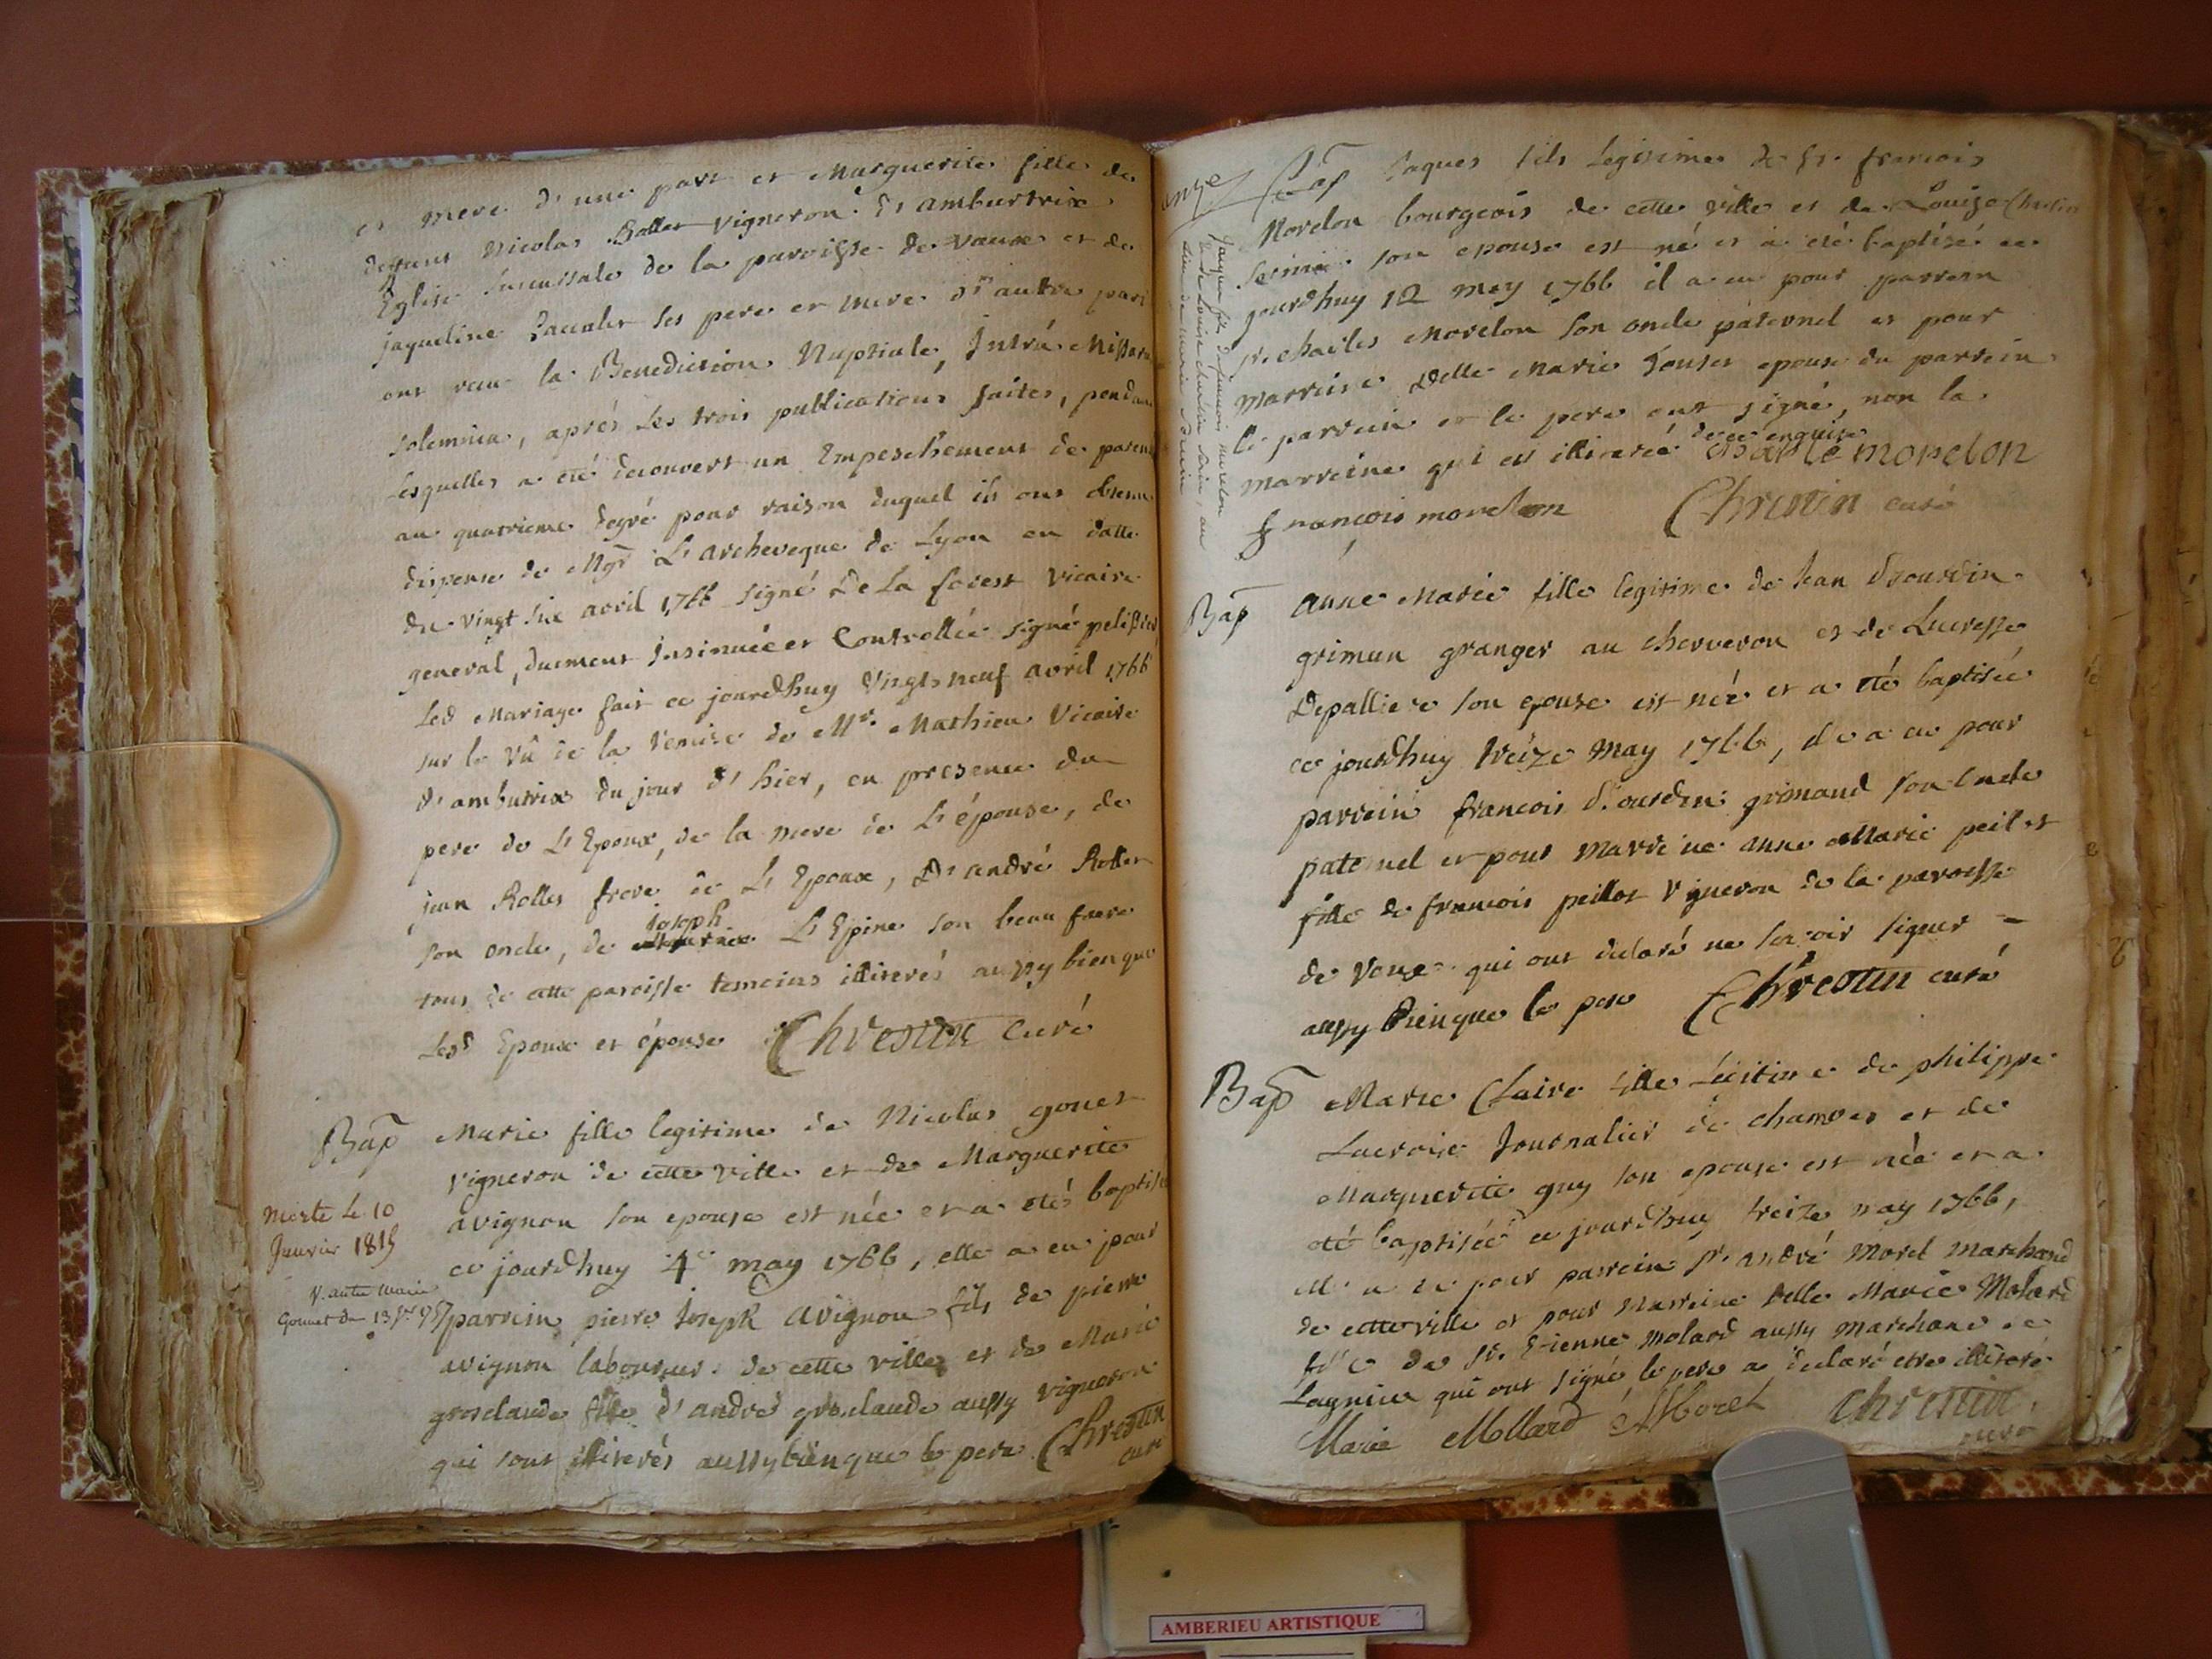 et mere d'une part et Marguerite fille de
deffunt Nicolas Rollet vigneron d'amburtrix
Eglise succursale de la paroisse de vaux et de
jaqueline ses pere et mere d'autre part
ont recu la Benediction Nuptiale, Intrà Missarum
solemnia, aprés les trois publications faites, pendant
lesquelles a eté decouvert un Empeschement de parenté
au quatrieme degré pour raison duquel ils ont obtenu
dispense de Mgr L'archeveque de Lyon en datte
du vingt six avril 1766 signé De La forest vicaire
general, duement Insinuée et Controllée signé
Led Mariage fait ce jourdhuy vingt neuf avril 1766
sur le vû de la remise de Mr. Mathieu Vicaire
d'ambutrix du jour d'hier, en presence du
pere de L'Epoux, de la mere de L'épouse, de
jean Rolles frere de L'Epoux, D'andré Rollet
son oncle, de joseph L'Epine son beau frere
tous de cette paroisse temoins illiterés aussy bien que
Lesd Epoux et épouse Chrestin Curé
Bap Marie fille legitime de Nicolas gonet
vigneron de cette ville et de Marguerite
avignon son epouse est née et a etés baptisé
ce jourdhuy 4e may 1766, elle a eu pour
parrein pierre Joseph avignon fils de pierre
avignon laboureur de cette ville et de Marie
grosclaude fille d'andré grosclaude aussy vigneron
qui sont illiterés aussy bien que le pere Chrestin
curé
Morte le 10
Janvier 1815
V. autre Marie
Gonnet du 13
onze
Bap Jaques fils legitime de sr. francois
Morelon bourgeois de cette ville et de Louize Chrestin
son epouse est né et a eté baptisé ce
jourdhuy 12 may 1766 il a eu pour parrein
sr. charles Morelon son oncle paternel et pour
marreine Delle Marie epouse du parrein
le parrein et le pere ont signé, non la
marreine qui est illiterée de ce enquise
morelon
François morelon Chrestin curé
Jaques fils de francois morelon
Bap anne Marie fille legitime de jean
griman granger au cherveron et de Lucresse
Depalliere son epouse est née et a eté baptisée
ce jourdhuy treize May 1766, elle a eu pour
parrein francois grimaud son oncle
paternel et pour marreine anne Marie peillot
fille de francois peillot vigneron de la paroisse
de vaux qui ont declaré ne scavoir signer
aussy bien que le pere Chrestin curé
Bap Marie Claire fille Légitime de philippe
Lacroix Journalier de et de
Marguerite guy son epouse est née et a
eté baptisée ce jourdhuy treize may 1766,
elle a eu pour parrein sr. andré Morel marchand
de cette ville et pour marreine Delle Marie Molard
fille de sr. Etienne molard aussy marchand de
Lagnieu qui ont signé le pere a declaré etre illiteré
Marie Mollard AMorel Chrestin
curé
AMBERIEU ARTISTIQUE